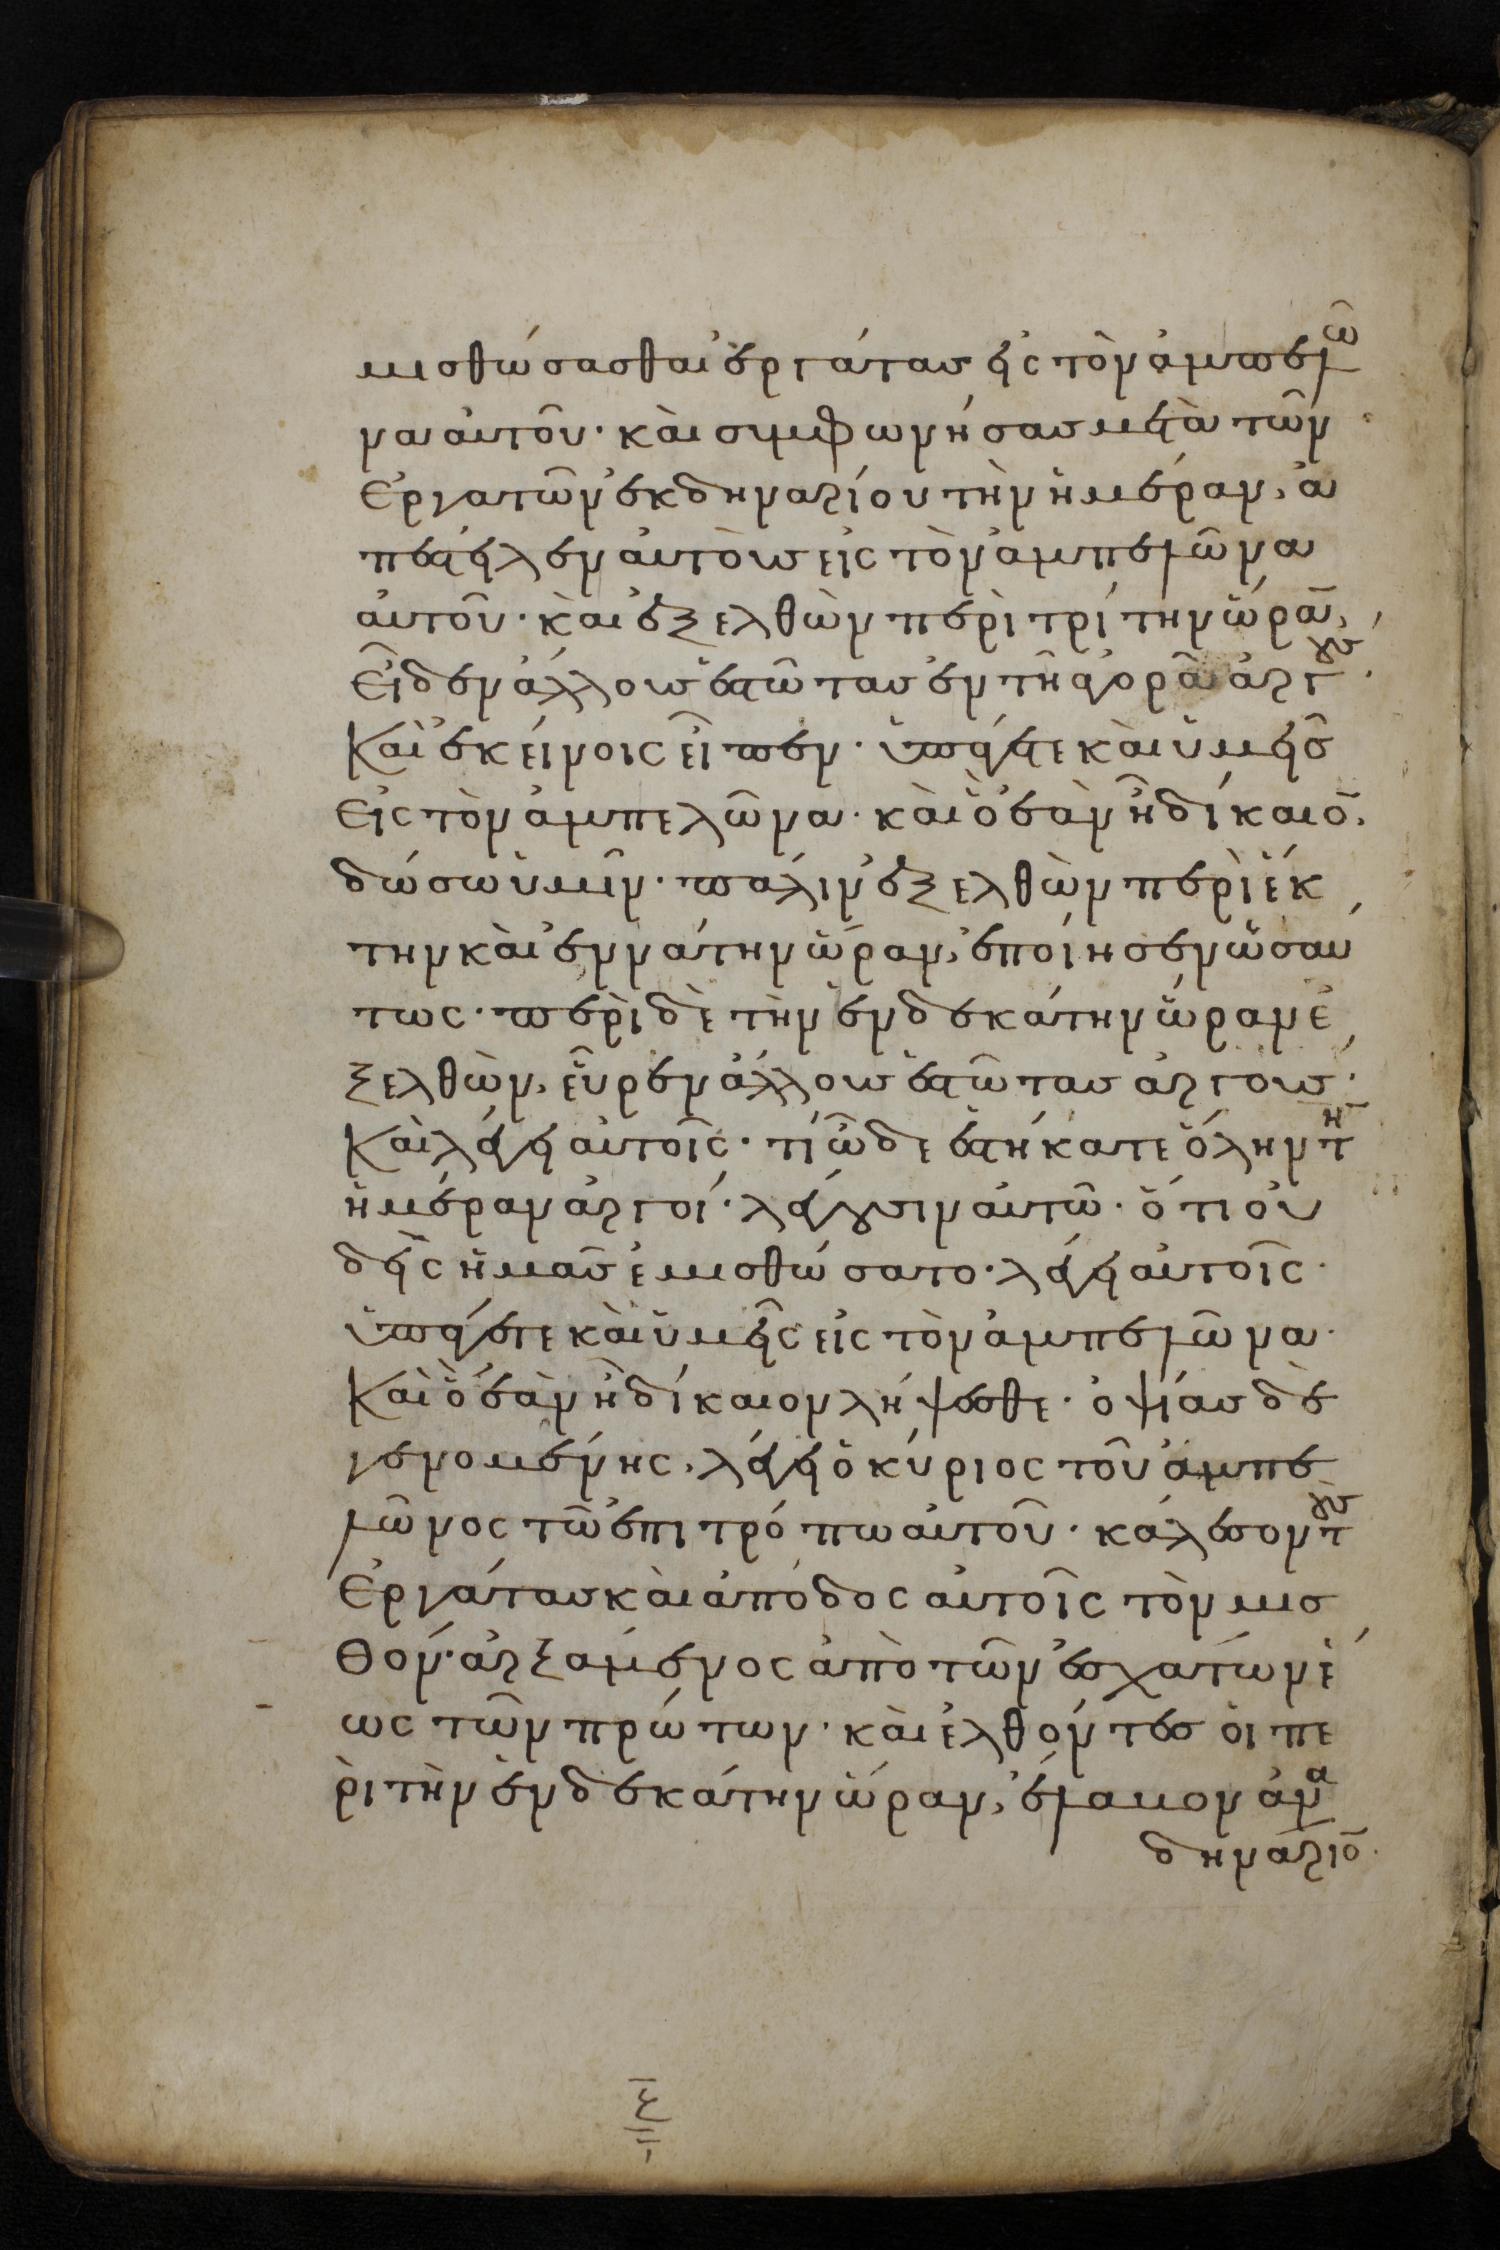 μισθώσασθαι ἐργάτας εἰς τὸν ἀμπελῶ
να αὐτοῦ· καὶ συμφωνήσας μετὰ τῶν
ἐργατῶν ἐκ δηναρίου τὴν ἡμέραν, ἀ
πέστειλεν αὐτοὺς εἰς τὸν ἀμπελῶνα
αὐτοῦ· καὶ ἐξελθὼν περὶ τρίτην ὥρα̅,
εἶδεν ἄλλους ἑστῶτας ἐν τῇ ἀγορᾷ ἀργούς·
Καὶ ἐκείνοις εἶπεν· ὑπάγετε καὶ ὑμεῖς
εἰς τὸν ἀμπελῶνα· καὶ ὃ ἐὰν ᾖ δίκαιο̅.
δώσω ὑμῖν· πάλιν ἐξελθὼν περὶ ἕκ
την καὶ ἐννάτην ὥραν, ἐποίησεν ὡσαύ
τως· περὶ δὲ τὴν ἑνδεκάτην ὥραν ἐ
ξελθὼν, εὗρεν ἄλλους ἑστῶτας ἀργούς·
Καὶ λέγει αὐτοῖς· τί ὧδε ἑστήκατε ὅλην τὴ̅
ἡμέραν ἀργοί· λέγουσιν αὐτῷ· ὅτι οὐ
δεὶς ἡμᾶς ἐμισθώσατο· λέγει αὐτοῖς·
ὑπάγετε καὶ ὑμεῖς εἰς τὸν ἀμπελῶνα·
Καὶ ὃ ἐὰν ᾖ δίκαιον λήψεσθε· ὀψίας δὲ
γενομένης, λέγει ὁ κύριος τοῦ ἀμπε
λῶνος τῷ ἐπιτρόπῳ αὐτοῦ· κάλεσον τοὺς
ἐργάτας καὶ ἀπόδος αὐτοῖς τὸν μισ
θόν· ἀρξάμενος ἀπὸ τῶν ἐσχάτων ἕ
ως τῶν πρώτων· καὶ ἐλθόντες οἱ πε
ρὶ τὴν ἑνδεκάτην ὥραν, ἔλαβον ἀνὰ
δηνάριο̅·